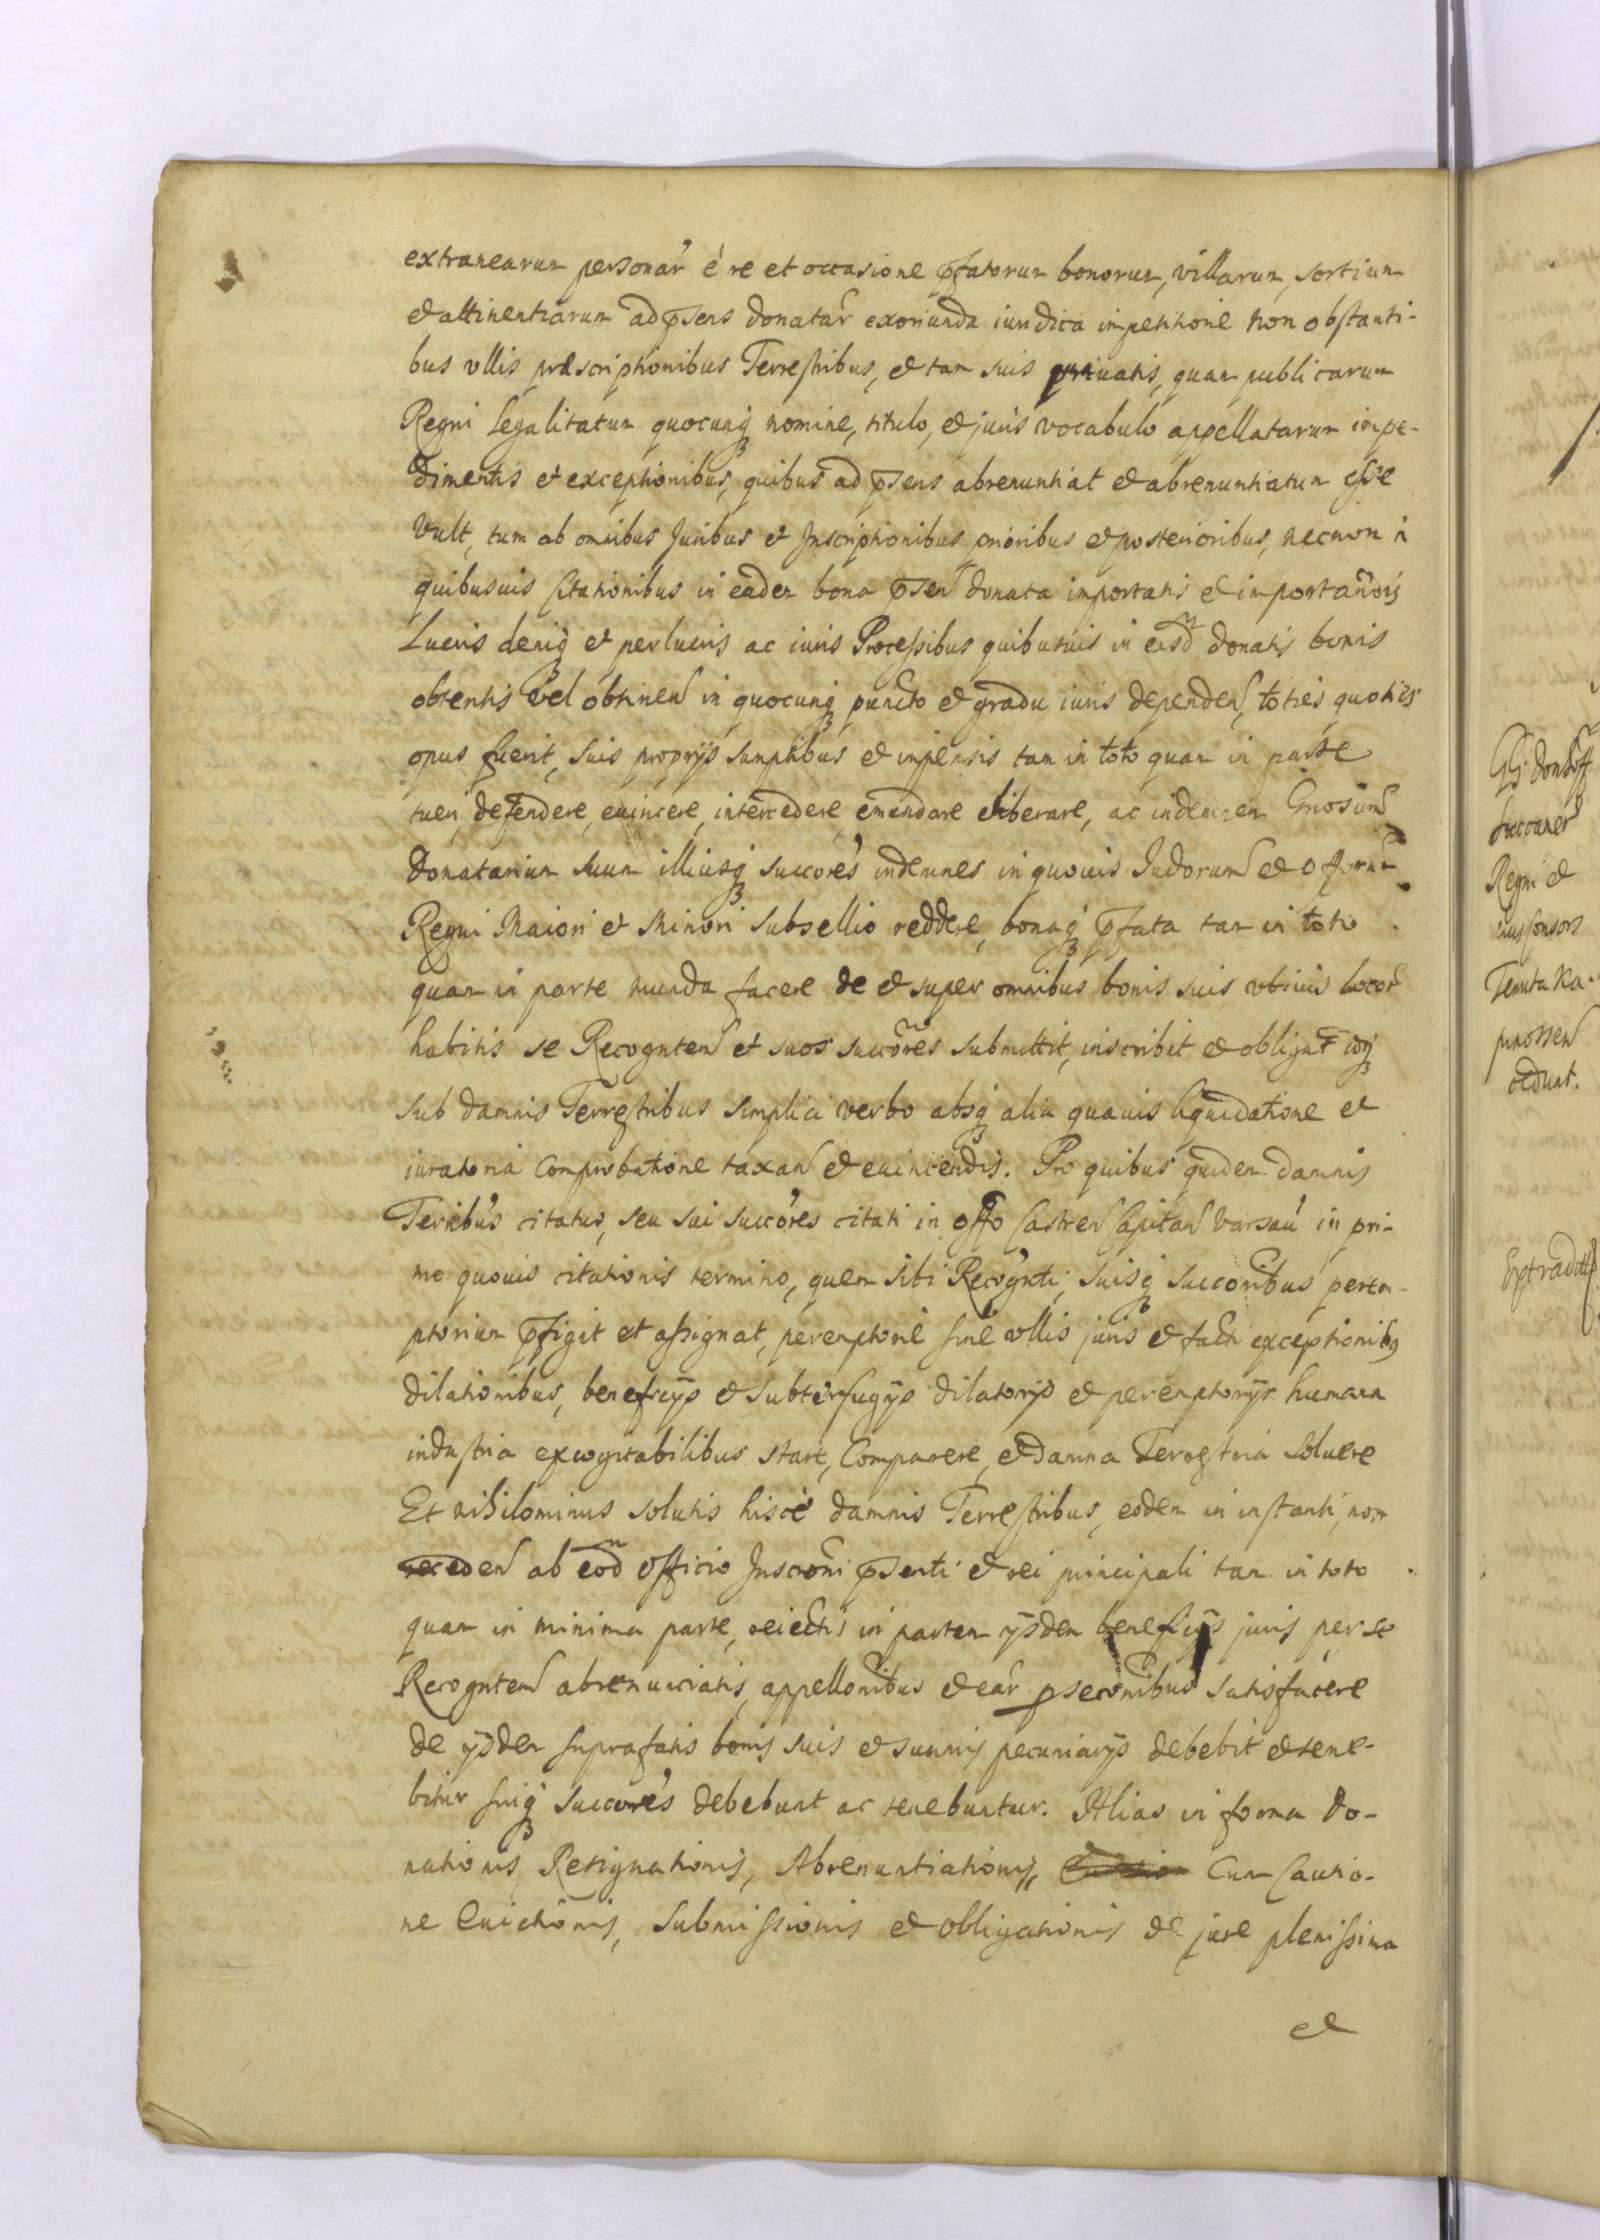 extranearum personar' è re et occasione pfatorum bonorum, villarum, sortium
et attinentiarum ad psens donatar exoriunda iuridica impetitione non obstanti-
bus vllis præscriptionibus Terrestribus, et tam suis priuatis, quam publicarum
Regni legalitatum quocunq nomine, titulo, et juris vocabulo appellatarum impe-
dimentis et exceptionibus, quibus ad psens abrenuntiat et abrenuntiatum esse
vult, tum ab omnibus Juribus et Inscriptionibus prioribus et posterioribus, necnon à
quibusuis Citationibus in eadem bona psen donata importatis et importandis
Lucris deniq et perlucris ac iuris Processibus quibusuis in eisd donatis bonis
obtentis vel obtinen in quocunq puncto et gradu iuris dependen, toties quoties
opus fuerit, suis proprijs sumptibus et impensis tam in toto quam in parte
tueri, defendere, euincere, intercedere, emundare liberare, ac indemnem Gnosum
Donatarium suum illiusq succores indemnes in quouis Judiorum et Offorum
Regni Maiori et Minori subsellio reddere, bonaq pfata tam in toto
quam in parte munda facere de et super omnibus bonis suis vbiuis locor
habitis se Recognten et suos succores submittit, inscribit et obligat idq
sub damnis Terrestribus simplici verbo absq alia quauis liquidatione et
iuratoria comprobatione taxan et euincendis. Pro quibus quidem damnis
Terribus citatus, seu sui succores citati in offo Castren Capitan Varsau in pri-
mo quouis citationis termino, quem sibi Recognti, suisq succoribus perem-
ptorium pfigit et assignat, peremptorie sine vllis juris et facti exceptionibq
dilationibus, beneficijs et subterfugijs dilatorijs et peremptorijs humana
industria excogitabilibus stare, Comparere, et damna Terrestria soluere
Et nihilominus solutis hisce damnis Terrestribus, eodem in instanti, non
receden ab eod officio Inscroni psenti et rei principali tam in toto
quam in minima parte, reiectis in partem ijsdem beneficijs juris per se
Recognten abrenunciatis, appellonibus et ear psecunibus satisfacere
de ijsdem suprafatis bonis suis et summis pecuniarijs debebit et tene-
bitur suiq succores debebunt ac tenebuntur. Alias in forma do-
nationis Resignationis, Abrenuntiationis, Cum Cautio-
ne Euictionis, submissionis et obligationis de jure plenissima
et
GG. Donhoff
succamer
Regni et
Tenuta Ka-
cedunt.